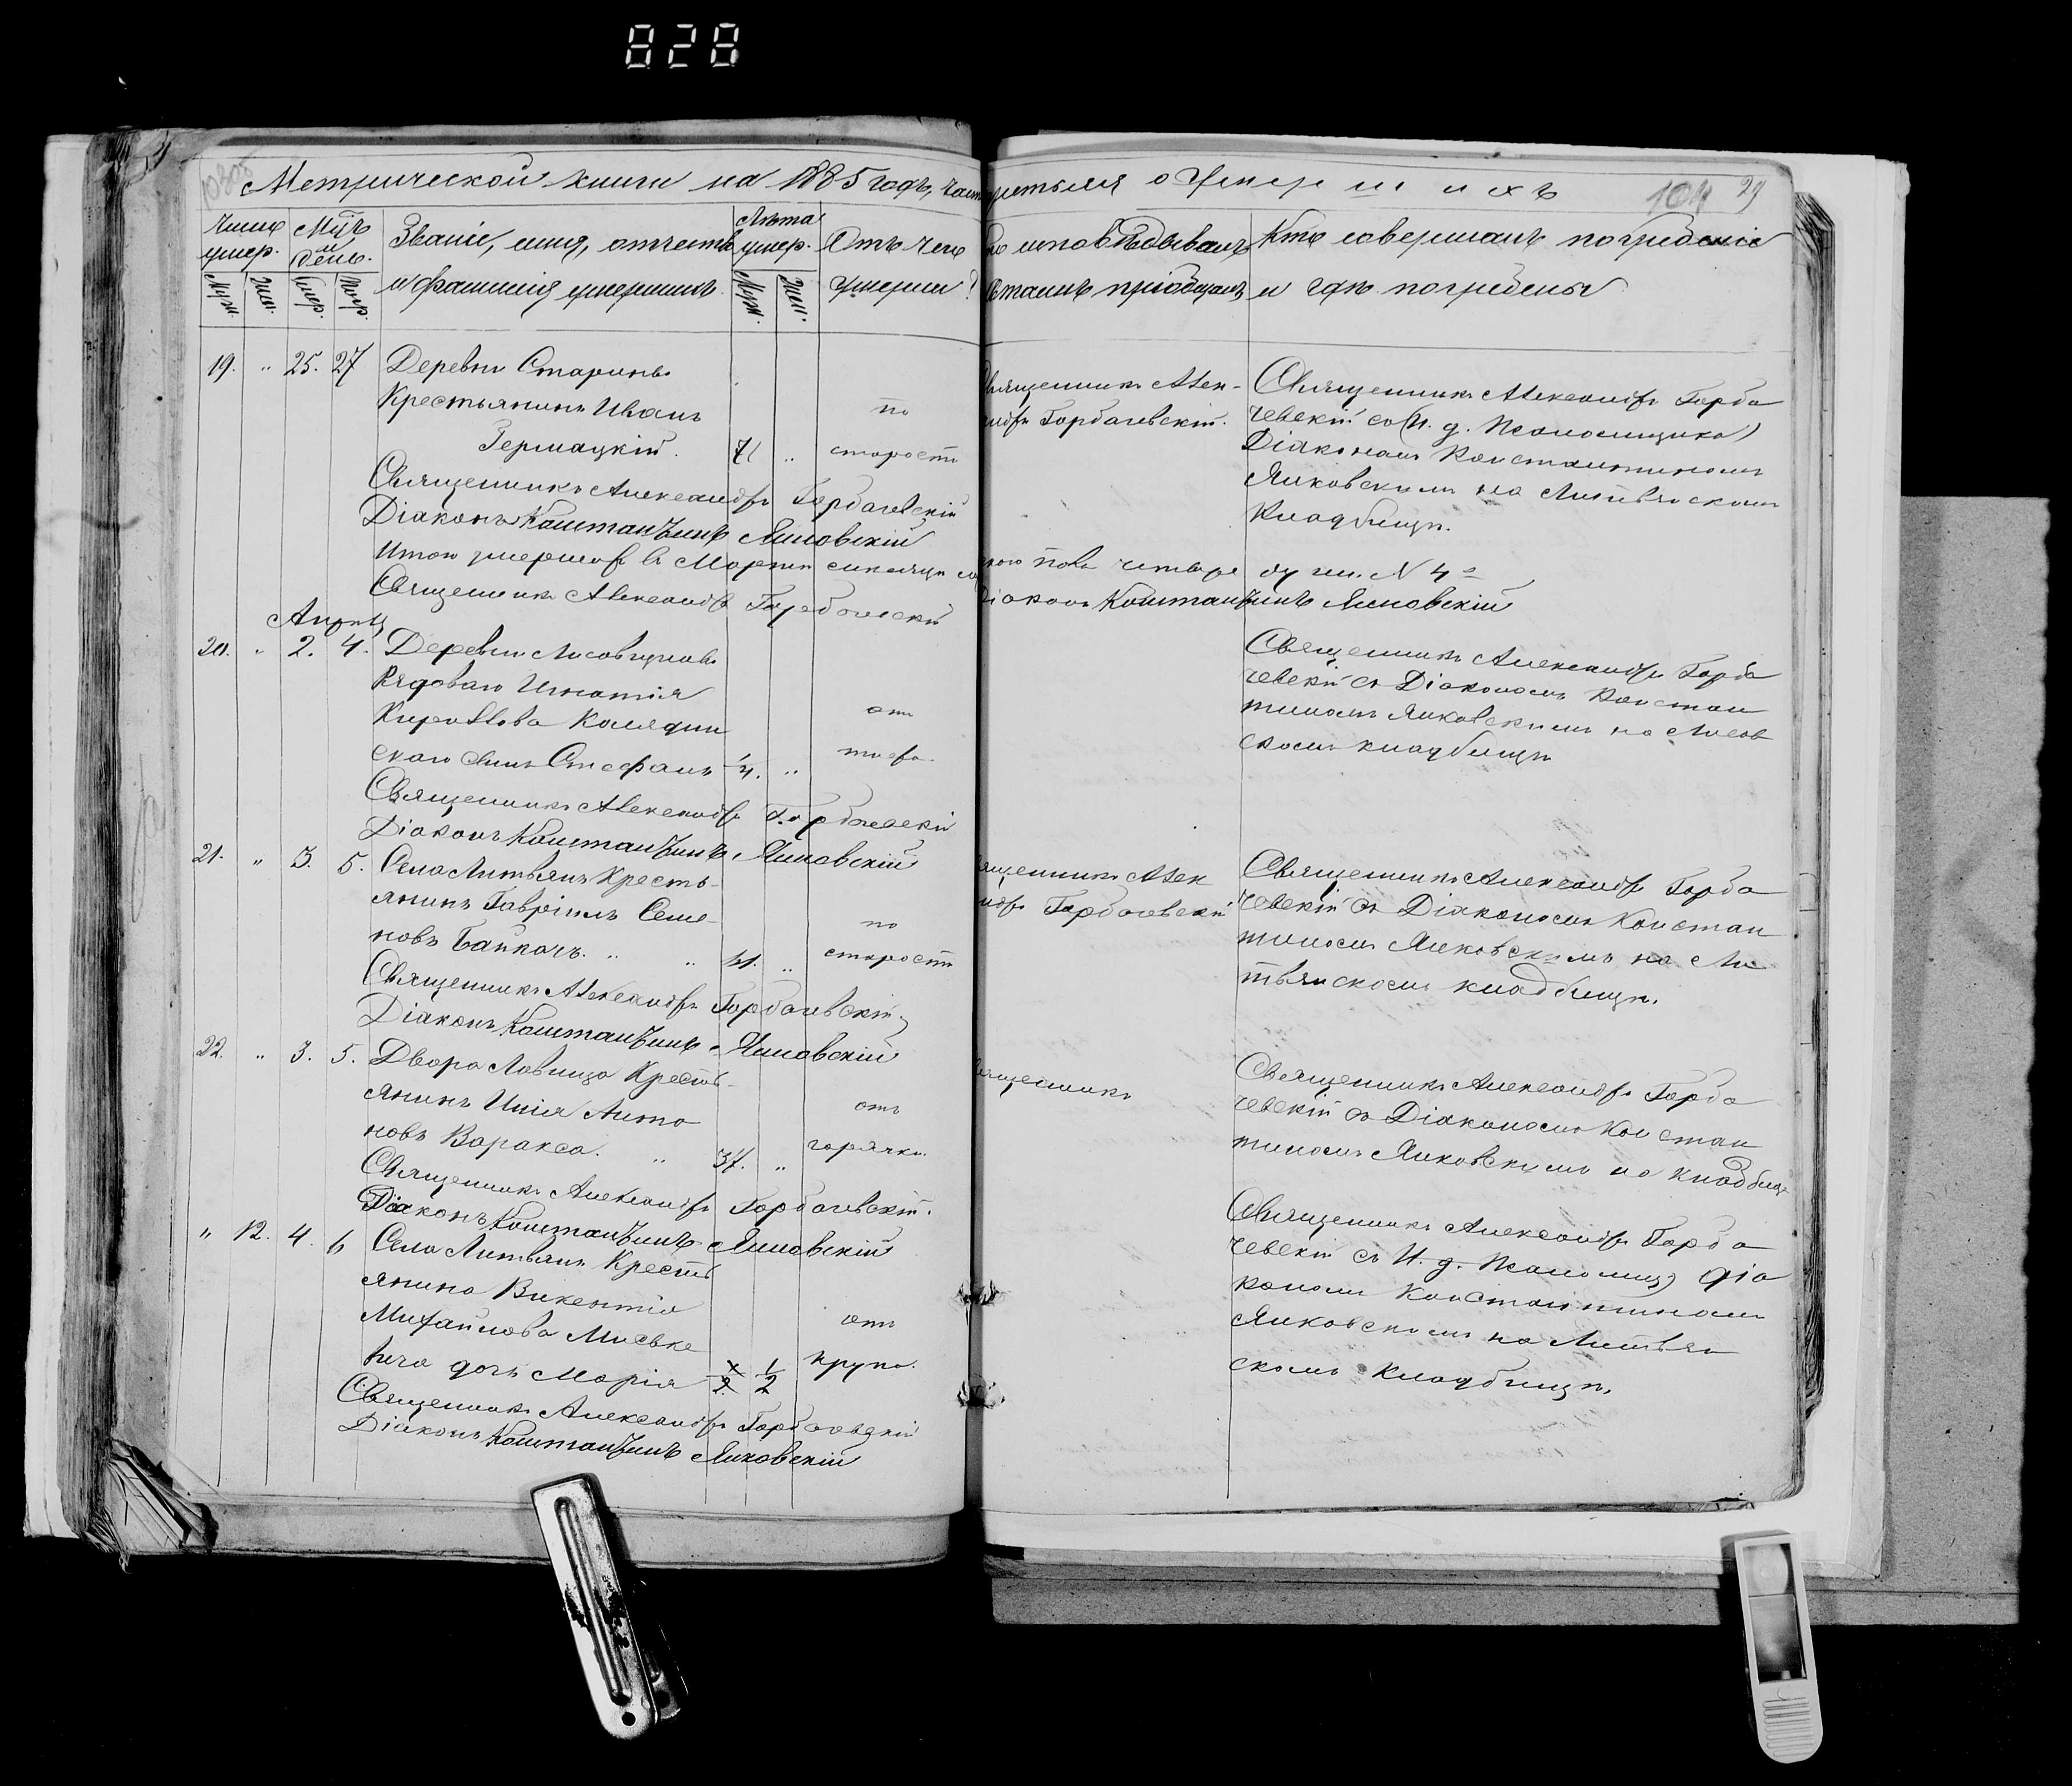 828
Метрической книги на 1885 годъ, часть третья о умершихъ
104 29
Число умер.
Мцъ и день.
Званіе, имя, отчество и фамилія умершихъ.
Лѣта умер.
Отъ чего умерли?
исповѣдывалъ
пріобщалъ
Кто совершалъ погребеніе
и гдѣ погребены
Муж. Жен. Умер. Погр. Муж. Жен.
19. " 25. 27 Деревни Старинъ
Крестьянинъ Иванъ
Гермацкій. 71 " по старости
Священникъ Александръ Горбачевскій
Діаконъ Константинъ Янковскій
Священникъ Алек-
андръ Горбачевскій.
Священникъ Александръ Горба
чевскій со (И. д. Псаломщика)
Діакономъ Константиномъ
Янковскимъ на Литвянскомъ
Кладбищѣ.
Итого умершихъ въ Мартѣ мѣсяцѣ мужескаго пола четыре души N 4
Священникъ Александръ Горбачевскій
Діаконъ Константинъ Янковскій
Апрѣль
20. " 2. 4. Деревни
Рядоваго Игнатія
Кирилова Колядин
скаго сынъ Стефанъ 1/4. " отъ тифа.
Священникъ Александръ Горбачевскій
Діаконъ Константинъ Янковскій
Священникъ Александръ Горба
чевскій съ Діакономъ Констан
тиномъ Янковскимъ на
скомъ кладбищѣ
21. " 3. 5. Села Литвянъ Кресть-
янинъ Гавріилъ Семе-
новъ Байкачъ. " " " по старости
Священникъ Александръ Горбачевскій
Діаконъ Константинъ Янковскій
Священникъ Алек
андръ Горбачевскій
Священникъ Александръ Горба
чевскій съ Діакономъ Констан
тиномъ Янковскимъ на Ли
твянскомъ кладбищѣ.
22. " 3. 5. Двора Ловища Кресть-
янинъ Илія Анто
новъВаракса. " 37. " отъ горячки.
Священникъ Александръ Горбачевскій.
Діаконъ Константинъ Янковскій
Священникъ
Священникъ Александръ Горба
чевскій съ Діакономъ Констан
тиномъ Янковскимъ на кладбищѣ
" 12. 4. 6 Села Литвянъ Кресть
янина Викентія
Михайлова Миське
вича дочь Марія 1/2 отъ крупа.
Священникъ Александръ Горбачевскій
Діаконъ Константинъ Янковскій
Священникъ Александръ Горба
чевскій съ И. д. Псаломщ) діа
кономъ Константиномъ
Янковскимъ на Литвян
скомъ Кладбищѣ.